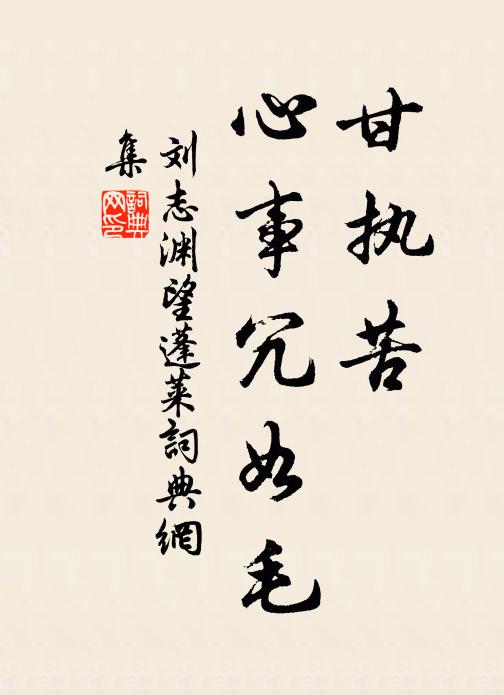 甘执苦
心事冗如毛
刘志渊望蓬莱詞典網
集
詞典網印